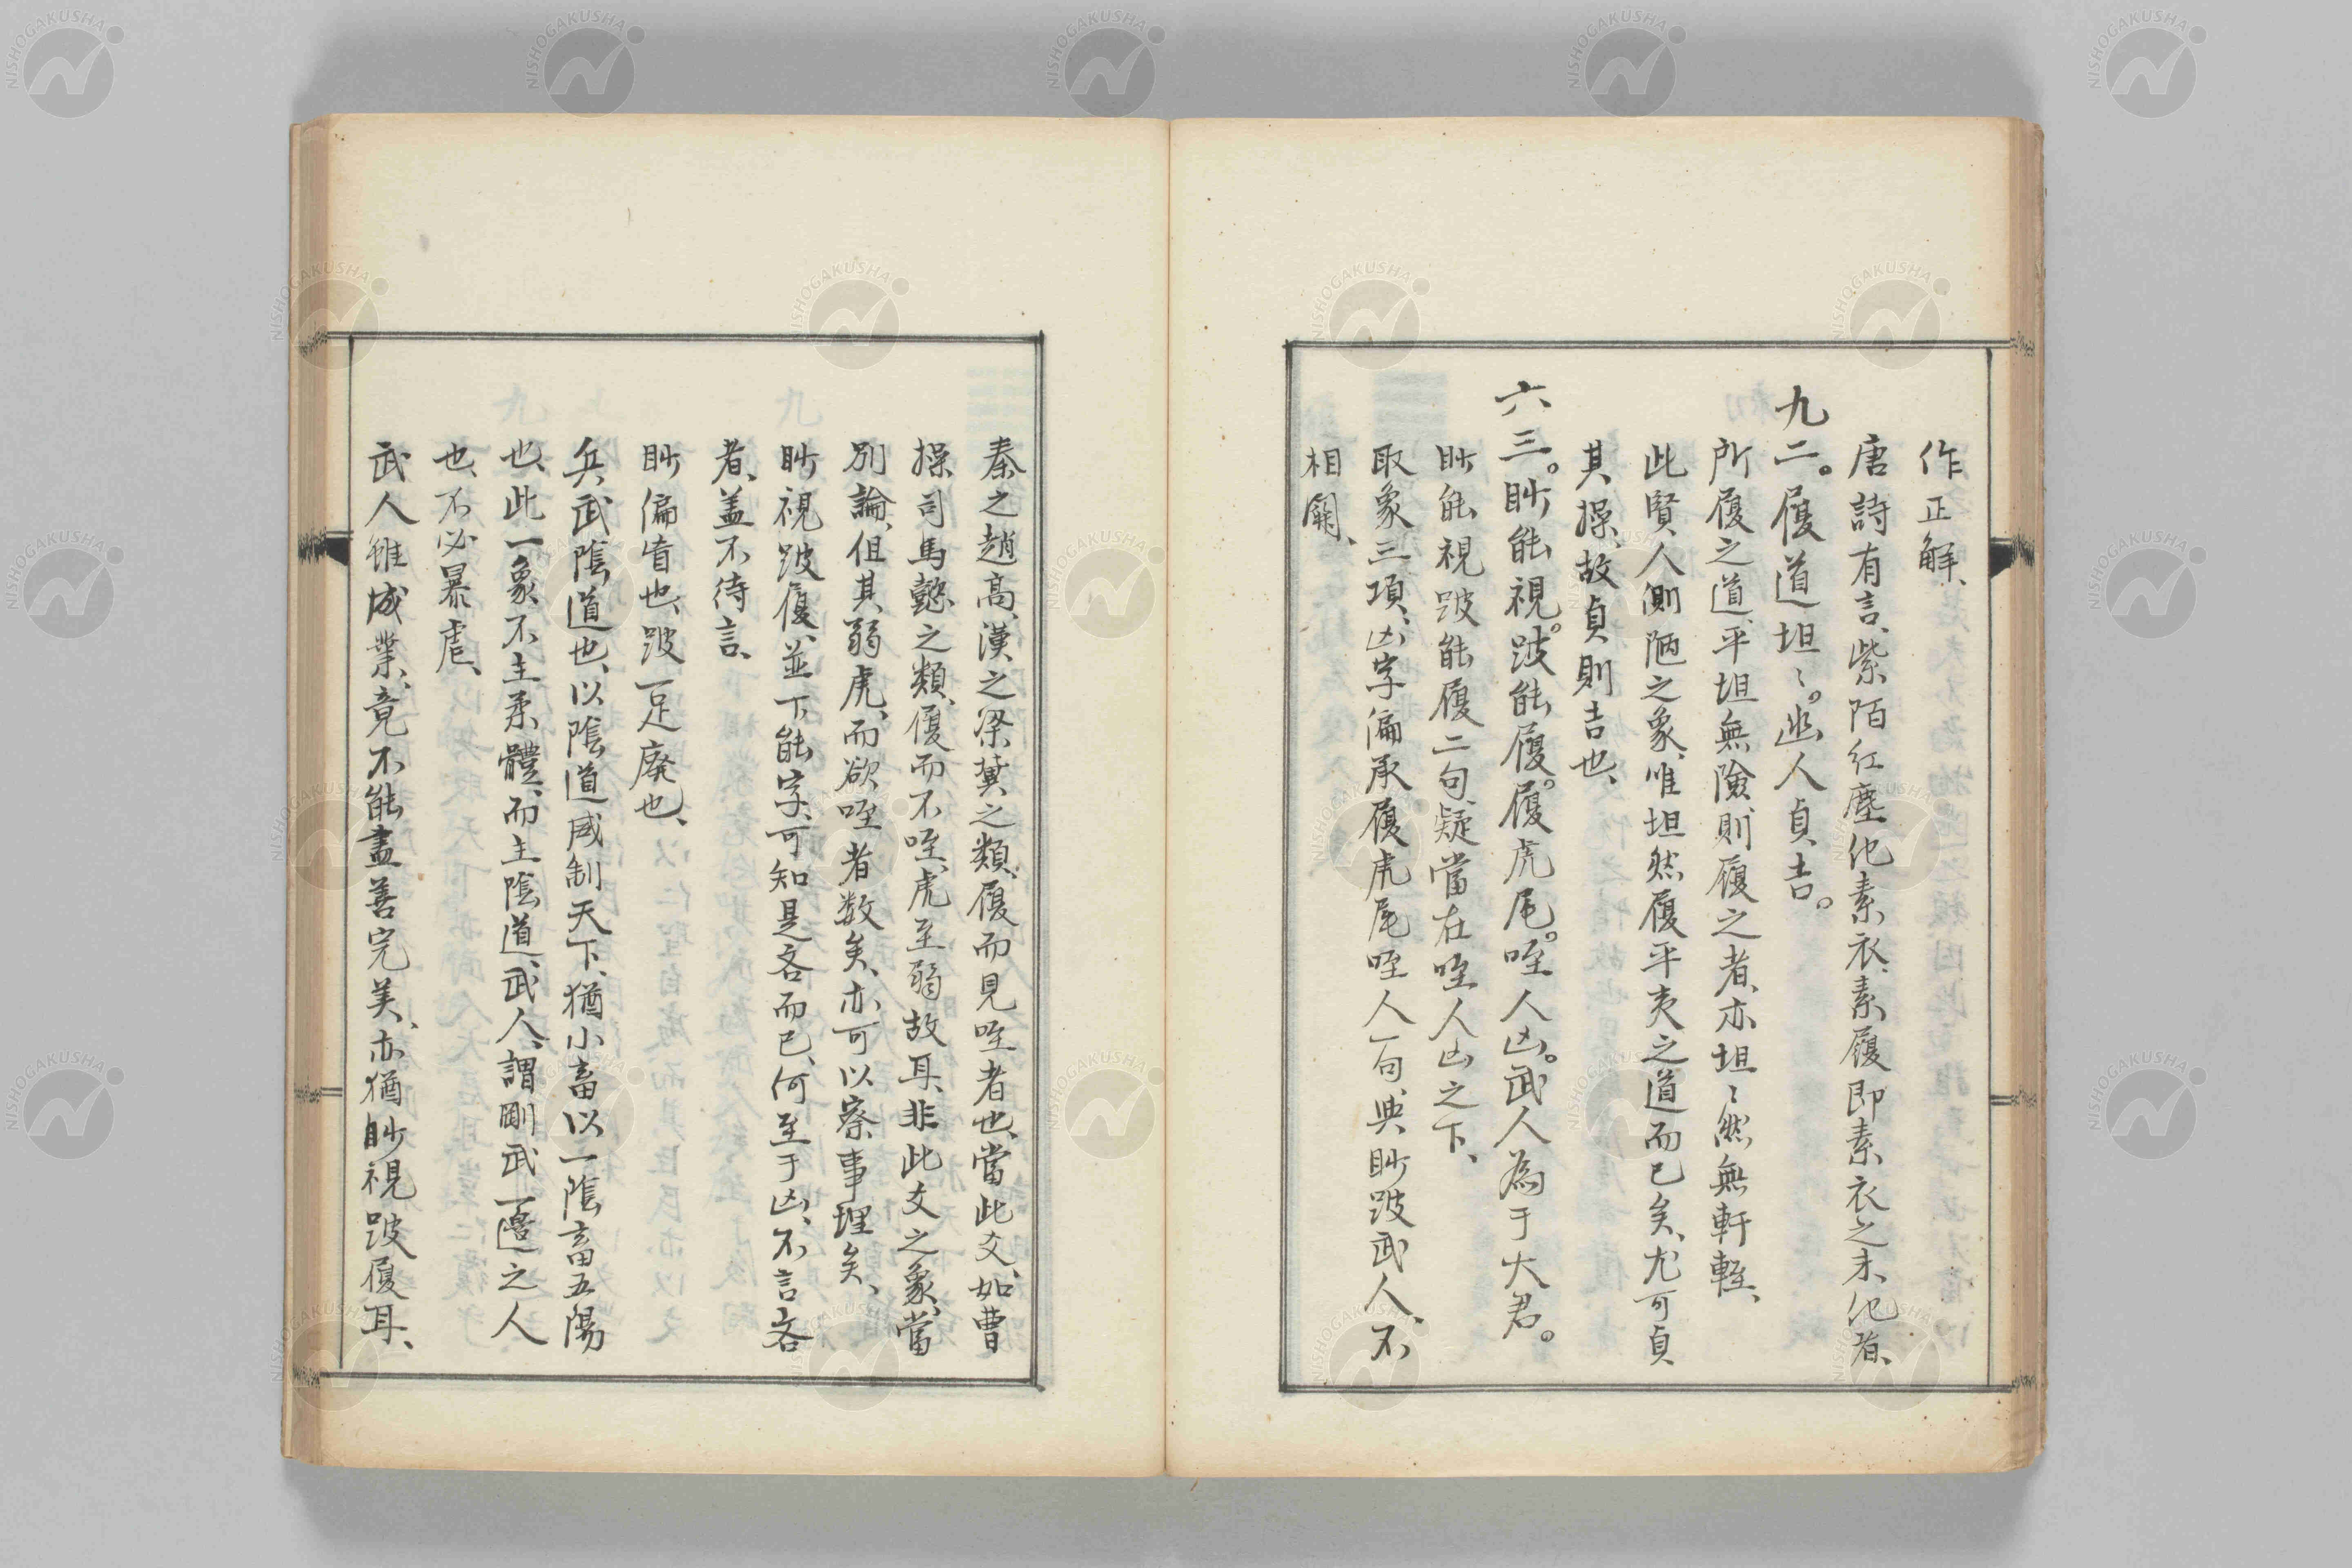 作正解、
唐詩有言、紫陌紅塵化素衣、素履即素衣之未化者、
九二。履道坦〻。幽人貞吉。
所履之道、平坦無險、則履之者、亦坦〻然無軒輊、
此賢人側陋之象、唯坦然履平夷之道而已矣、尤可貞
其操、故貞則吉也、
六三。眇能視。跛能履。履虎尾。咥人凶。武人為于大君。
眇能視跛能履二句、疑當在咥人凶之下、
取象三項、凶字偏承履虎尾咥人一句、與眇跛武人、不
相關、
秦之趙高、漢之梁冀之類、履而見咥者也、當此爻、如曹
操司馬懿之類、履而不咥、虎至弱故耳、非此爻之象、當
別論、但其弱虎、而欲咥者数矣、亦可以察事理矣、
眇視跛履、並下能字、可知是吝而已、何至于凶、不言吝
者、盖不待言、
眇偏盲也、跛一足廃也、
兵武陰道也、以陰道威制天下、猶小畜以一陰畜五陽
也、此一象不主柔體、而主陰道、武人、謂剛武一邊之人
也、不必暴虐、
武人雖成業、竟不能盡善完美、亦猶眇視跛履耳、
NISHOGAKUSHA